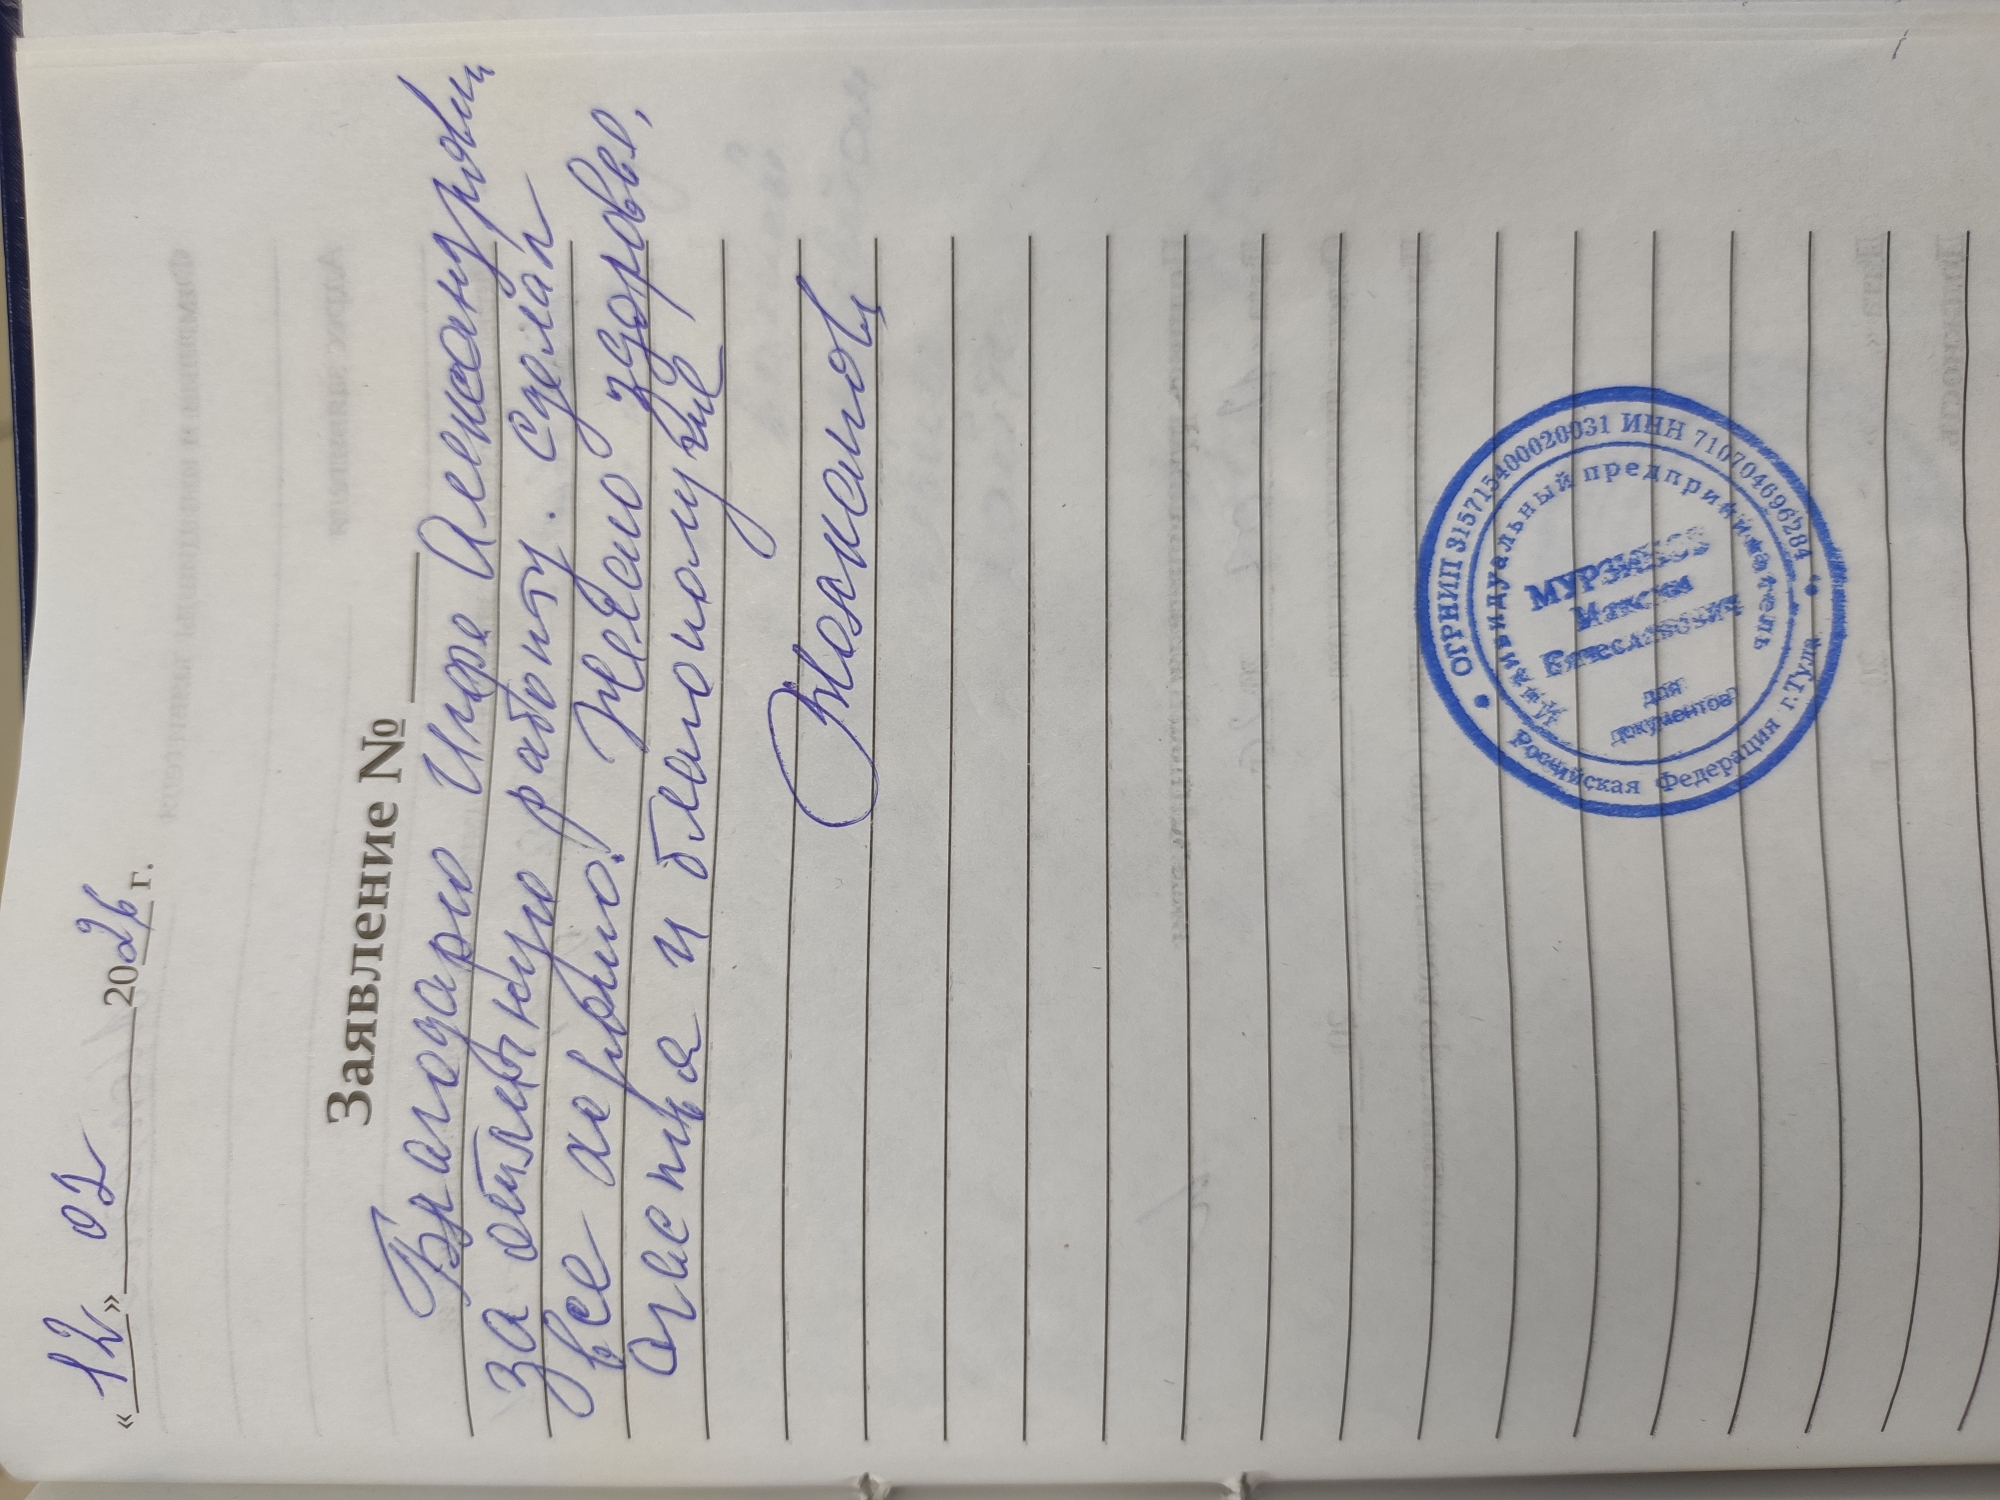 «12» 02 2026 г.
Заявление №
Благодарю Игоря Александрович
за отличную работу. Сделал
все хорошо! Желаю здоровье,
счастья и благополучие
ОГРНИП 315715400020031 ИНН 710704696284
Индивидуальный предприниматель
МУРЗИНОВ
Максим
Вячеславович
для
документов
Российская Федерация г.Тула